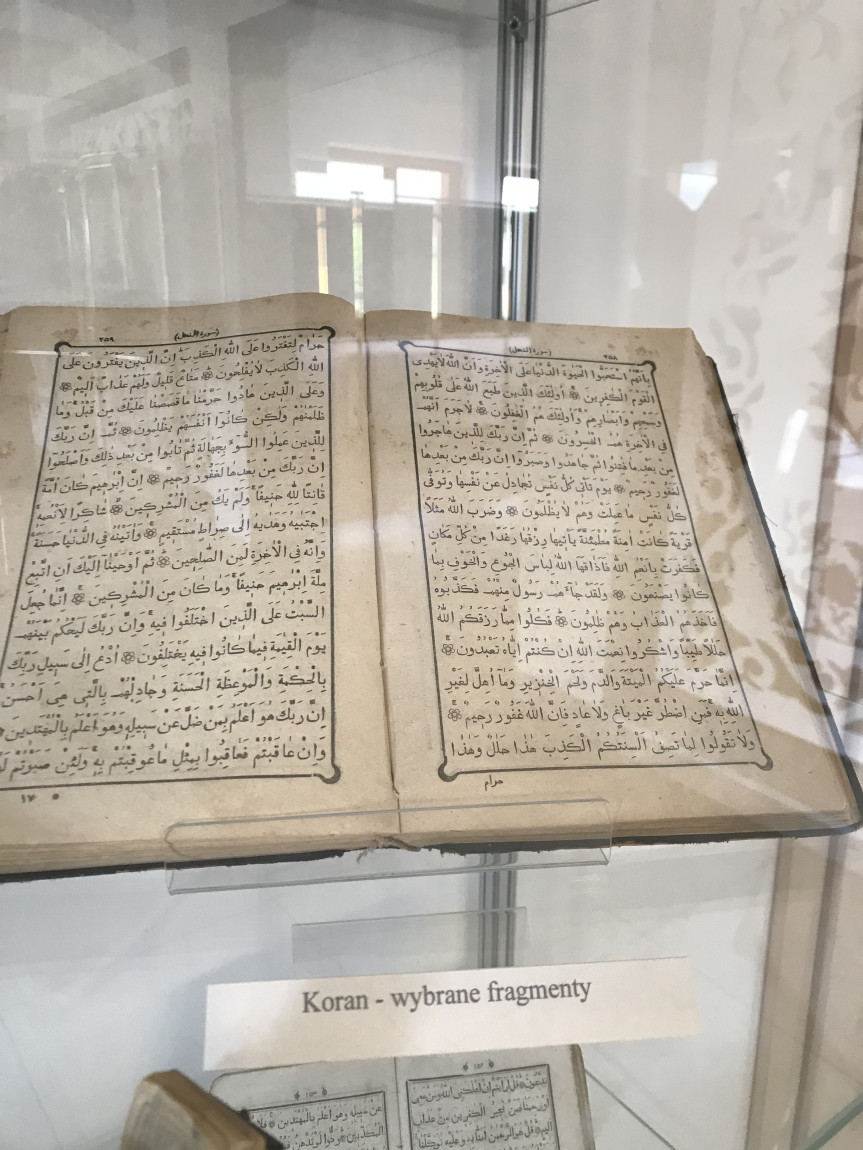 ٢٥٨ (سورة النحل)
بِاَنَّهُمُ اسْتَحَبُّوا الْحَيٰوةَ الدُّنْيَا عَلَى الْاٰخِرَةِ وَاَنَّ اللّٰهَ لَا يَهْدِى
الْقَوْمَ الْكٰفِرِينَ ۞ اُولٰئِكَ الَّذِينَ طَبَعَ اللّٰهُ عَلٰى قُلُوبِهِمْ
وَسَمْعِهِمْ وَاَبْصَارِهِمْ وَاُولٰئِكَ هُمُ الْغٰفِلُونَ ۞ لَاجَرَمَ اَنَّهُمْ
فِى الْاٰخِرَةِ هُمُ الْخٰسِرُونَ ۞ ثُمَّ اِنَّ رَبَّكَ لِلَّذِينَ هَاجَرُوا
مِنْ بَعْدِ مَا فُتِنُوا ثُمَّ جَاهَدُوا وَصَبَرُوا اِنَّ رَبَّكَ مِنْ بَعْدِهَا
لَغَفُورٌ رَحِيمٌ ۞ يَوْمَ تَأْتِى كُلُّ نَفْسٍ تُجَادِلُ عَنْ نَفْسِهَا وَتُوَفّٰى
كُلُّ نَفْسٍ مَا عَمِلَتْ وَهُمْ لَا يُظْلَمُونَ ۞ وَضَرَبَ اللّٰهُ مَثَلًا
قَرْيَةً كَانَتْ اٰمِنَةً مُطْمَئِنَّةً يَأْتِيهَا رِزْقُهَا رَغَدًا مِنْ كُلِّ مَكَانٍ
فَكَفَرَتْ بِاَنْعُمِ اللّٰهِ فَاَذَاقَهَا اللّٰهُ لِبَاسَ الْجُوعِ وَالْخَوْفِ بِمَا
كَانُوا يَصْنَعُونَ ۞ وَلَقَدْ جَآءَهُمْ رَسُولٌ مِنْهُمْ فَكَذَّبُوهُ
فَاَخَذَهُمُ الْعَذَابُ وَهُمْ ظٰلِمُونَ ۞ فَكُلُوا مِمَّا رَزَقَكُمُ اللّٰهُ
حَلَالًا طَيِّبًا وَاشْكُرُوا نِعْمَتَ اللّٰهِ اِنْ كُنْتُمْ اِيَّاهُ تَعْبُدُونَ ۞
اِنَّمَا حَرَّمَ عَلَيْكُمُ الْمَيْتَةَ وَالدَّمَ وَلَحْمَ الْخِنْزِيرِ وَمَآ اُهِلَّ لِغَيْرِ
اللّٰهِ بِهِ فَمَنِ اضْطُرَّ غَيْرَ بَاغٍ وَلَا عَادٍ فَاِنَّ اللّٰهَ غَفُورٌ رَحِيمٌ ۞
وَلَا تَقُولُوا لِمَا تَصِفُ اَلْسِنَتُكُمُ الْكَذِبَ هٰذَا حَلَالٌ وَهٰذَا
حرام
(سورة النحل) ٢٥٩
حَرَامٌ لِتَفْتَرُوا عَلَى اللّٰهِ الْكَذِبَ اِنَّ الَّذِينَ يَفْتَرُونَ عَلَى
اللّٰهِ الْكَذِبَ لَا يُفْلِحُونَ ۞ مَتَاعٌ قَلِيلٌ وَلَهُمْ عَذَابٌ اَلِيمٌ ۞
وَعَلَى الَّذِينَ هَادُوا حَرَّمْنَا مَا قَصَصْنَا عَلَيْكَ مِنْ قَبْلُ وَمَا
ظَلَمْنٰهُمْ وَلٰكِنْ كَانُوا اَنْفُسَهُمْ يَظْلِمُونَ ۞ ثُمَّ اِنَّ رَبَّكَ
لِلَّذِينَ عَمِلُوا السُّوءَ بِجَهَالَةٍ ثُمَّ تَابُوا مِنْ بَعْدِ ذٰلِكَ وَاَصْلَحُوا
اِنَّ رَبَّكَ مِنْ بَعْدِهَا لَغَفُورٌ رَحِيمٌ ۞ اِنَّ اِبْرٰهِيمَ كَانَ اُمَّةً
قَانِتًا لِلّٰهِ حَنِيفًا وَلَمْ يَكُ مِنَ الْمُشْرِكِينَ ۞ شَاكِرًا لِاَنْعُمِهِ
اجْتَبٰيهُ وَهَدٰيهُ اِلٰى صِرَاطٍ مُسْتَقِيمٍ ۞ وَاٰتَيْنٰهُ فِى الدُّنْيَا حَسَنَةً
وَاِنَّهُ فِى الْاٰخِرَةِ لَمِنَ الصّٰلِحِينَ ۞ ثُمَّ اَوْحَيْنَآ اِلَيْكَ اَنِ اتَّبِعْ
مِلَّةَ اِبْرٰهِيمَ حَنِيفًا وَمَا كَانَ مِنَ الْمُشْرِكِينَ ۞ اِنَّمَا جُعِلَ
السَّبْتُ عَلَى الَّذِينَ اخْتَلَفُوا فِيهِ وَاِنَّ رَبَّكَ لَيَحْكُمُ بَيْنَهُمْ
يَوْمَ الْقِيٰمَةِ فِيمَا كَانُوا فِيهِ يَخْتَلِفُونَ ۞ اُدْعُ اِلٰى سَبِيلِ رَبِّكَ
بِالْحِكْمَةِ وَالْمَوْعِظَةِ الْحَسَنَةِ وَجَادِلْهُمْ بِالَّتِى هِىَ اَحْسَنُ
اِنَّ رَبَّكَ هُوَ اَعْلَمُ بِمَنْ ضَلَّ عَنْ سَبِيلِهِ وَهُوَ اَعْلَمُ بِالْمُهْتَدِينَ
وَاِنْ عَاقَبْتُمْ فَعَاقِبُوا بِمِثْلِ مَا عُوقِبْتُمْ بِهِ وَلَئِنْ صَبَرْتُمْ
١٧
Koran - wybrane fragmenty
تدعون ۞ قل ارايتم ان اهلكنى الله ومن معى
او رحمنا فمن يجير الكفرين من عذاب
اليم ۞ قل هو الرحمن امنا به وعليه توكلنا
عن سبيله وهو اعلم بالمهتدين ۞ فلا
المكذبين ۞ ودوا لو تدهن